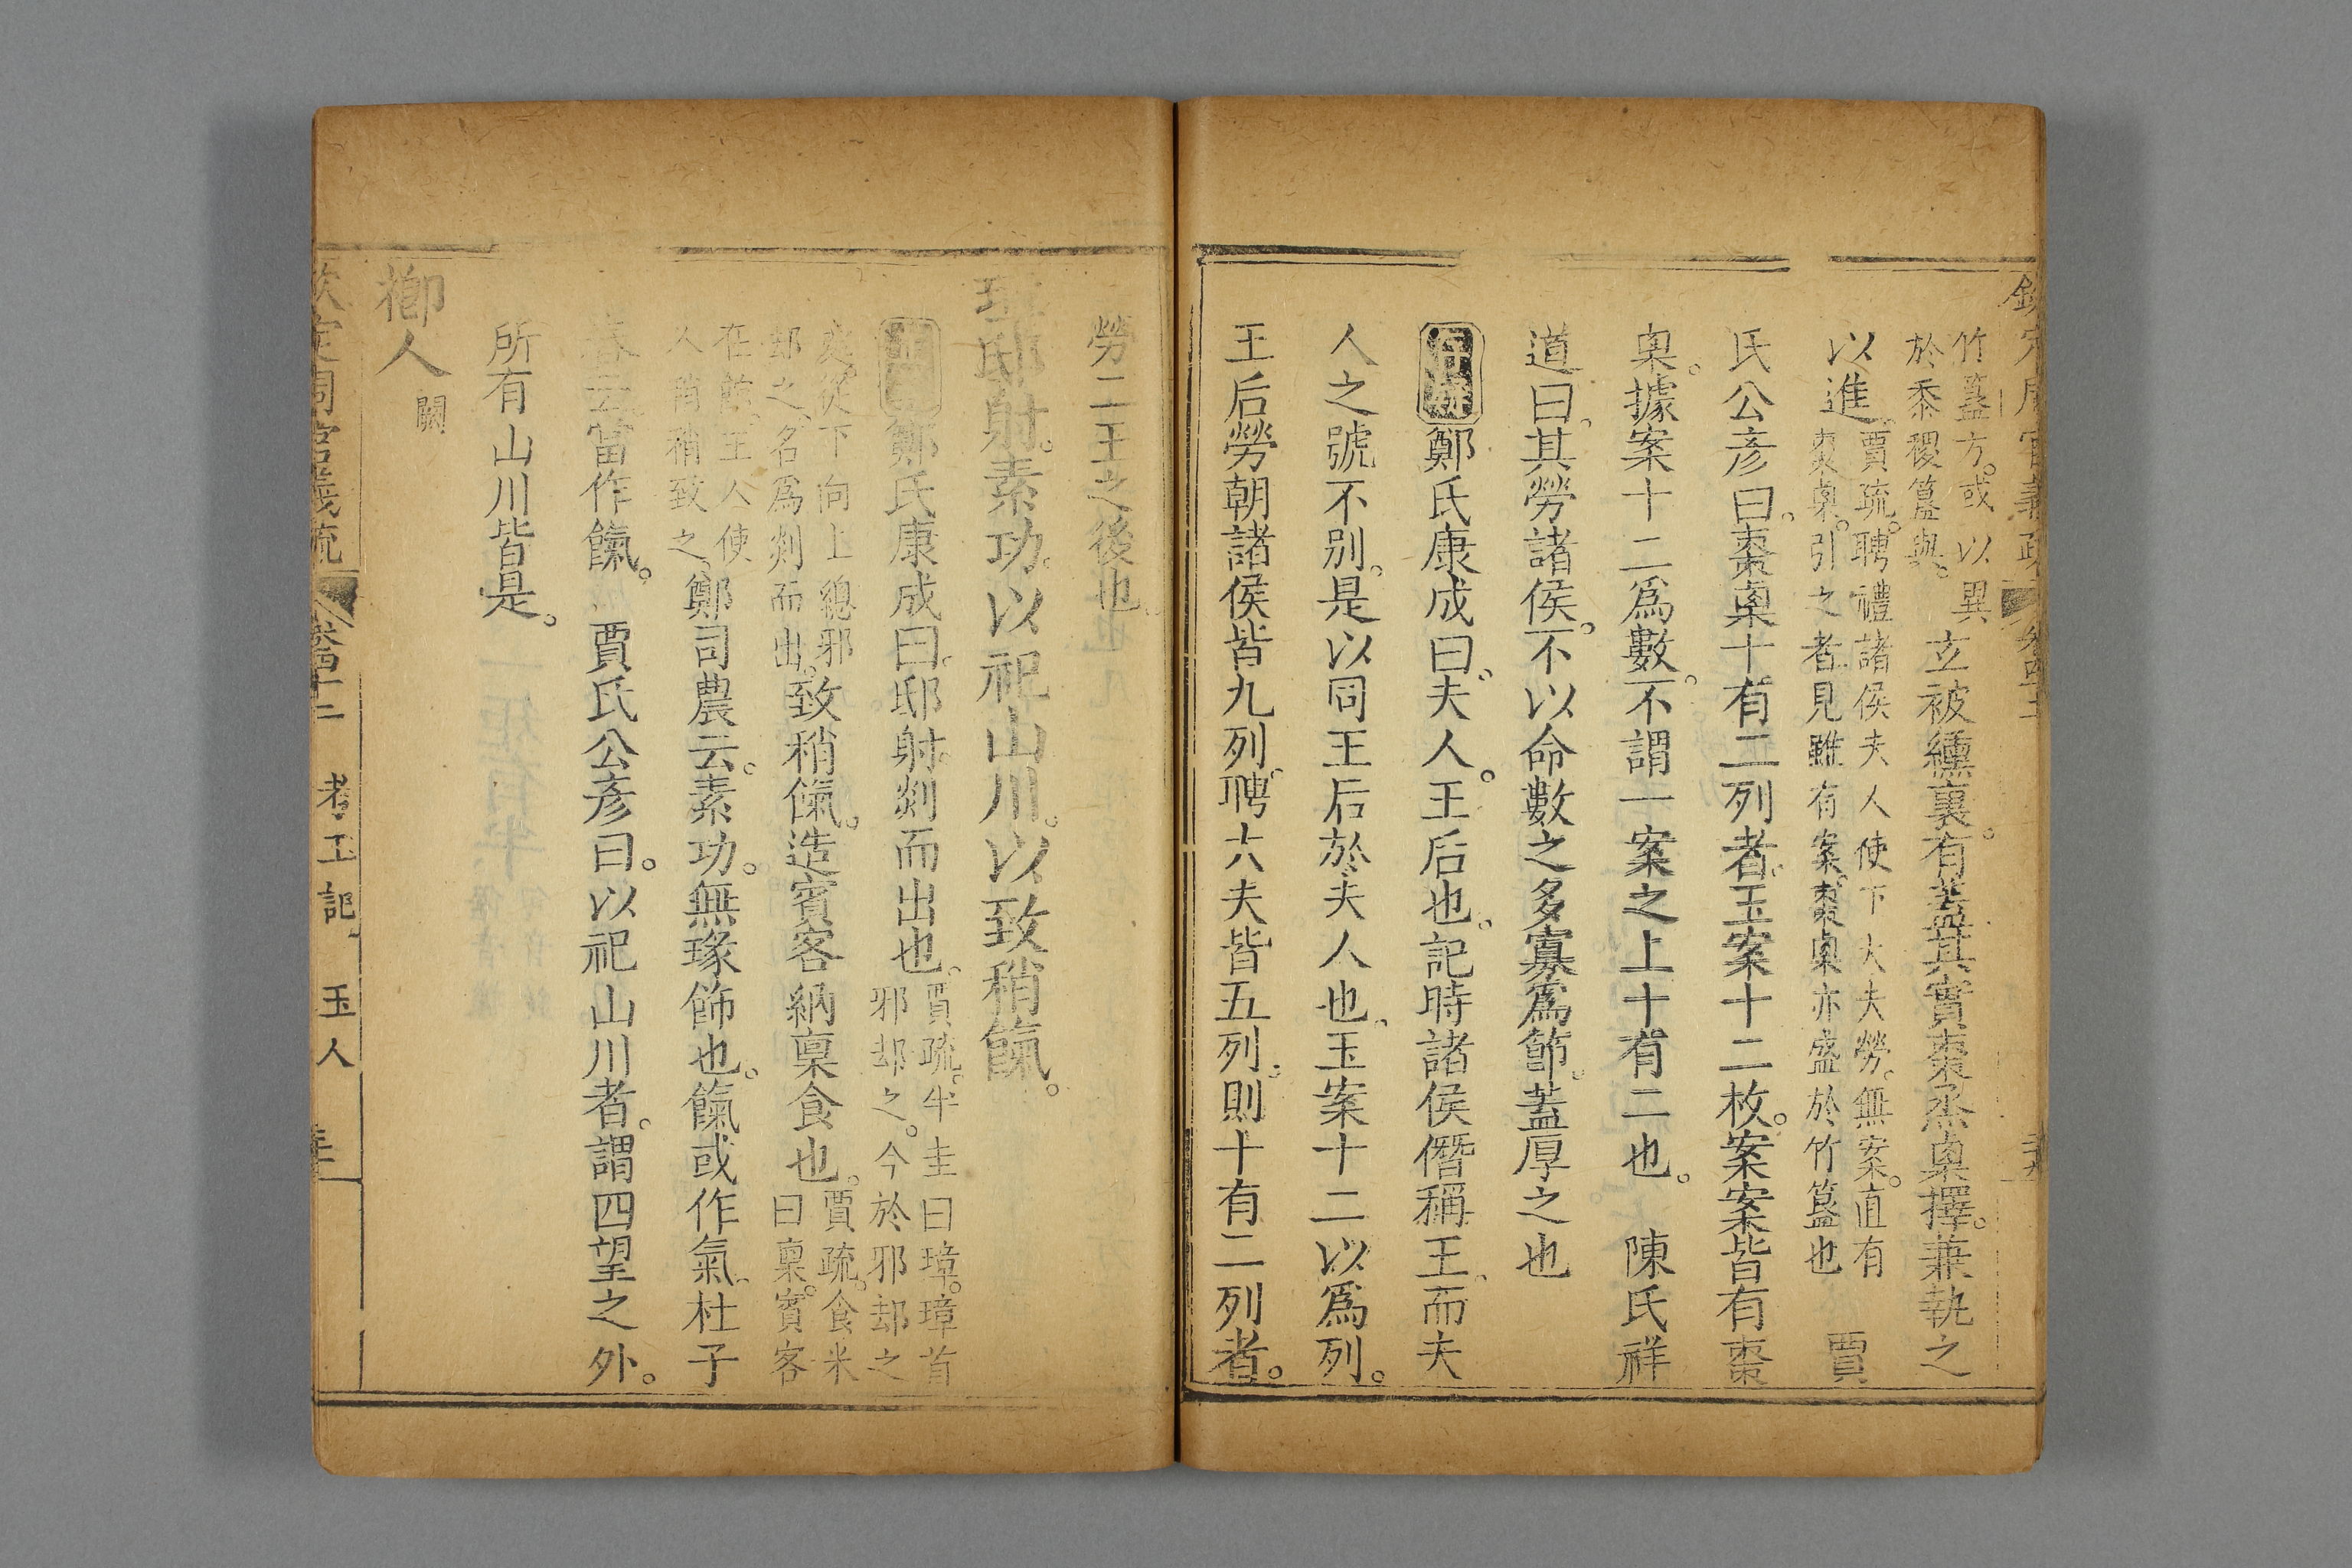 竹簋方。或以異
於黍稷簋與。
玄被纁裏。有蓋其實棗烝㮚擇。兼執之
以進。
賈疏。聘禮諸侯夫人使下大夫勞。無案。直有
棗㮚。引之者。見雖有案。棗㮚亦盛於竹簋也
賈
氏公彥曰。棗㮚十有二列者。玉案十二枚。案案皆有棗
㮚。據案十二爲數。不謂一案之上十有二也。 陳氏祥
道曰。其勞諸侯。不以命數之多寡爲節。蓋厚之也
鄭氏康成曰。夫人。王后也。記時諸侯僭稱王。而夫
人之號不别。是以同王后於夫人也。玉案十二以爲列。
王后勞朝諸侯皆九列。聘大夫皆五列。則十有二列者。
勞二王之後也。
邸射。素功。以祀山川。以致稍餼。
鄭氏康成曰。邸射。剡而出也。
賈疏。半圭曰璋。璋首
邪却之。今於邪却之
處從下向上緫邪
却之。名爲剡而出。
致稍餼。造賓客納稟食也。
賈疏。食米
曰稟。賓客
在館。主人使
人稍稍致之。
鄭司農云。素功。無瑑飾也。餼或作氣。杜子
春云當作餼。 賈氏公彥曰。以祀山川者。謂四望之外。
所有山川皆是。
楖人 闕
欽定周官義疏 卷四十二 考工記 玉人